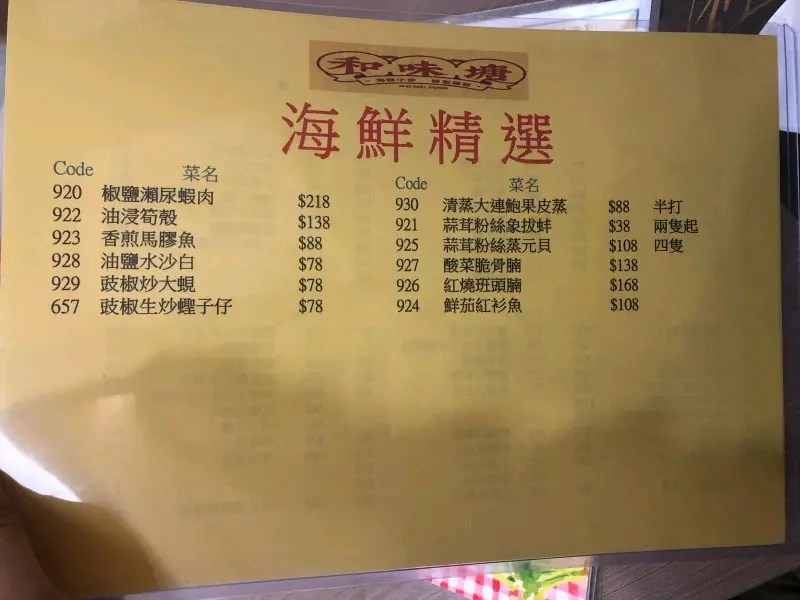 和味塘
WO MEI TONG
海鮮精選
Code 菜名
920 椒鹽瀨尿蝦肉 $218
922 油浸筍殼 $138
923 香煎馬膠魚 $88
928 油鹽水沙白 $78
929 豉椒炒大蜆 $78
657 豉椒生炒蟶子仔 $78
Code 菜名
930 清蒸大連鮑果皮蒸 $88 半打
921 蒜茸粉絲象拔蚌 $38 兩隻起
925 蒜茸粉絲蒸元貝 $108 四隻
927 酸菜脆骨腩 $138
926 紅燒班頭腩 $168
924 鮮茄紅衫魚 $108